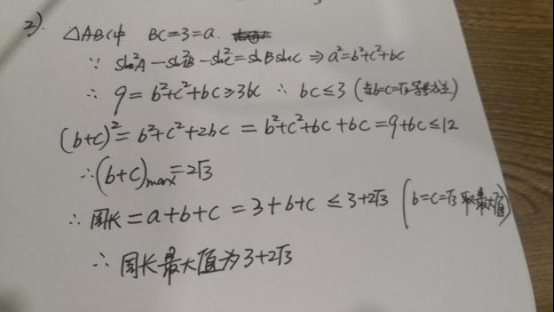 2). △ABC中 BC=3=a.
∵ sin²A-sin²B-sin²C=sinBsinC ⇒a²=b²+c²+bc
∴ 9=b²+c²+bc≥3bc ∴ bc≤3 (当b=c=√3等号成立)
(b+c)²=b²+c²+2bc=b²+c²+bc+bc=9+bc≤12
∴(b+c)max=2√3
∴ 周长=a+b+c=3+b+c≤3+2√3 (b=c=√3 取最大值)
∴ 周长最大值为3+2√3